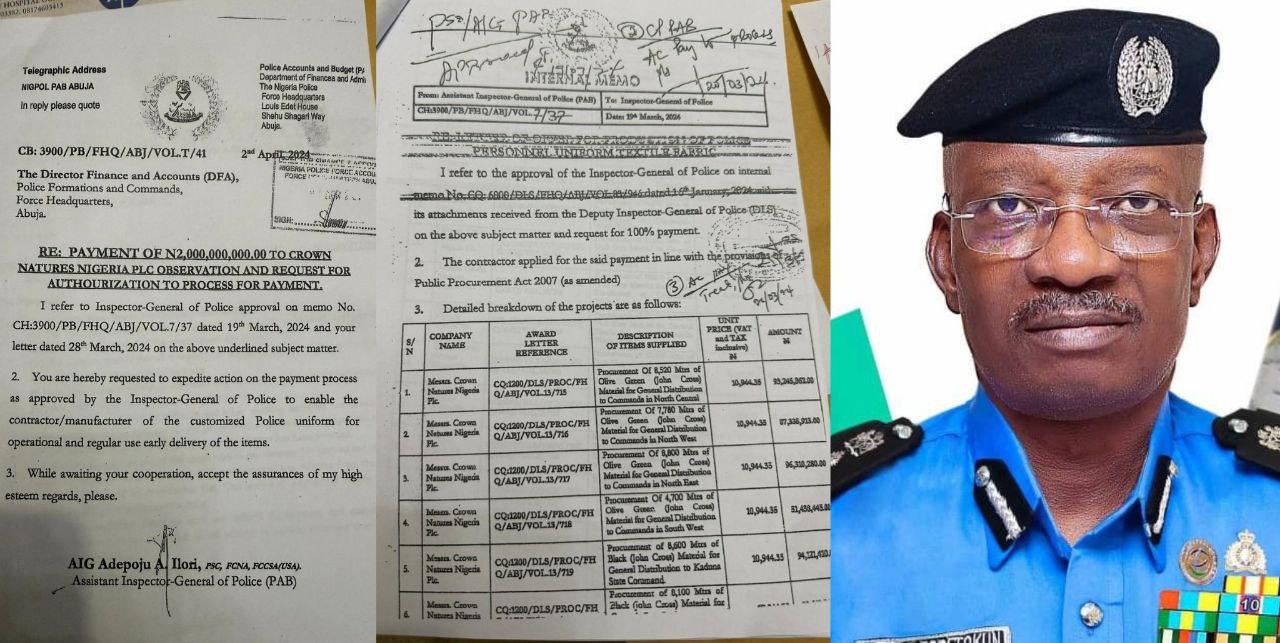 HOSPITAL
03382, 08174603415
Telegraphic Address
NIGPOL PAB ABUJA
In reply please quote
Police Accounts and Budget (PA
Department of Finances and Admi
The Nigeria Police
Force Headquarters
Louis Edet House
Shehu Shagari Way
Abuja.
CB: 3900/PB/FHQ/ABJ/VOL.T/41
2nd April, 2024
The Director Finance and Accounts (DFA),
Police Formations and Commands,
Force Headquarters,
Abuja.
NIGERIA POLICE FORCE
SIGN:
RE: PAYMENT OF N2,000,000,000.00 TO CROWN
NATURES NIGERIA PLC OBSERVATION AND REQUEST FOR
AUTHOURIZATION TO PROCESS FOR PAYMENT.
I refer to Inspector-General of Police approval on memo No.
CH:3900/PB/FHQ/ABJ/VOL.7/37 dated 19th March, 2024 and your
letter dated 28th March, 2024 on the above underlined subject matter.
2. You are hereby requested to expedite action on the payment process
as approved by the Inspector-General of Police to enable the
contractor/manufacturer of the customized Police uniform for
operational and regular use early delivery of the items.
3. While awaiting your cooperation, accept the assurances of my high
esteem regards, please.
AIG Adepoju A. Ilori, PSC, FCNA, FCCSA(USA).
Assistant Inspector-General of Police (PAB)
PSO/AIG PAB
② CP PAB
AC Pay to process
Approved
20/03/24
INTERNAL MEMO
From: Assistant Inspector-General of Police (PAB)
To: Inspector-General of Police
CH:3900/PB/FHQ/ABJ/VOL.7/37
Date: 19th March, 2024
RE: LETTER OF OFFER FOR PRODUCTION OF POLICE
PERSONNEL UNIFORM TEXTILE FABRIC
I refer to the approval of the Inspector-General of Police on internal
memo No. CQ: 6000/DLS/FHQ/ABJ/VOL.83/946 dated 16th January, 2024 with
its attachments received from the Deputy Inspector-General of Police (DLS)
on the above subject matter and request for 100% payment.
2. The contractor applied for the said payment in line with the provisions of
Public Procurement Act 2007 (as amended)
③ AC
3. Detailed breakdown of the projects are as follows:
S/N COMPANY NAME AWARD LETTER REFERENCE DESCRIPTION OF ITEMS SUPPLIED UNIT PRICE (VAT and TAX inclusive) N AMOUNT N
1. Messrs. Crown Natures Nigeria Plc. CQ:1200/DLS/PROC/FHQ/ABJ/VOL.13/715 Procurement Of 8,520 Mtrs of Olive Green (John Cross) Material for General Distribution to Commands in North Central 10,944.35 93,245,862.00
2. Messrs. Crown Natures Nigeria Plc. CQ:1200/DLS/PROC/FHQ/ABJ/VOL.13/716 Procurement Of 7,780 Mtrs of Olive Green (John Cross) Material for General Distribution to Commands in North West 10,944.35
3. Messrs. Crown Natures Nigeria Plc. CQ:1200/DLS/PROC/FHQ/ABJ/VOL.13/717 Procurement Of 8,800 Mtrs of Olive Green (John Cross) Material for General Distribution to Commands in North East 10,944.35 96,310,280.00
4. Messrs. Crown Natures Nigeria Plc. CQ:1200/DLS/PROC/FHQ/ABJ/VOL.13/718 Procurement Of 4,700 Mtrs of Olive Green (John Cross) Material for General Distribution to Commands in South West 10,944.35 51,438,445.00
5. Messrs. Crown Natures Nigeria Plc. CQ:1200/DLS/PROC/FHQ/ABJ/VOL.13/719 Procurement of 8,600 Mtrs of Black (John Cross) Material for General Distribution to Kaduna State Command 10,944.35 94,121,410.
6. Messrs. Crown Natures Nigeria CQ:1200/DLS/PROC/FH Procurement of 8,100 Mtrs of Black (John Cross) Material for
10